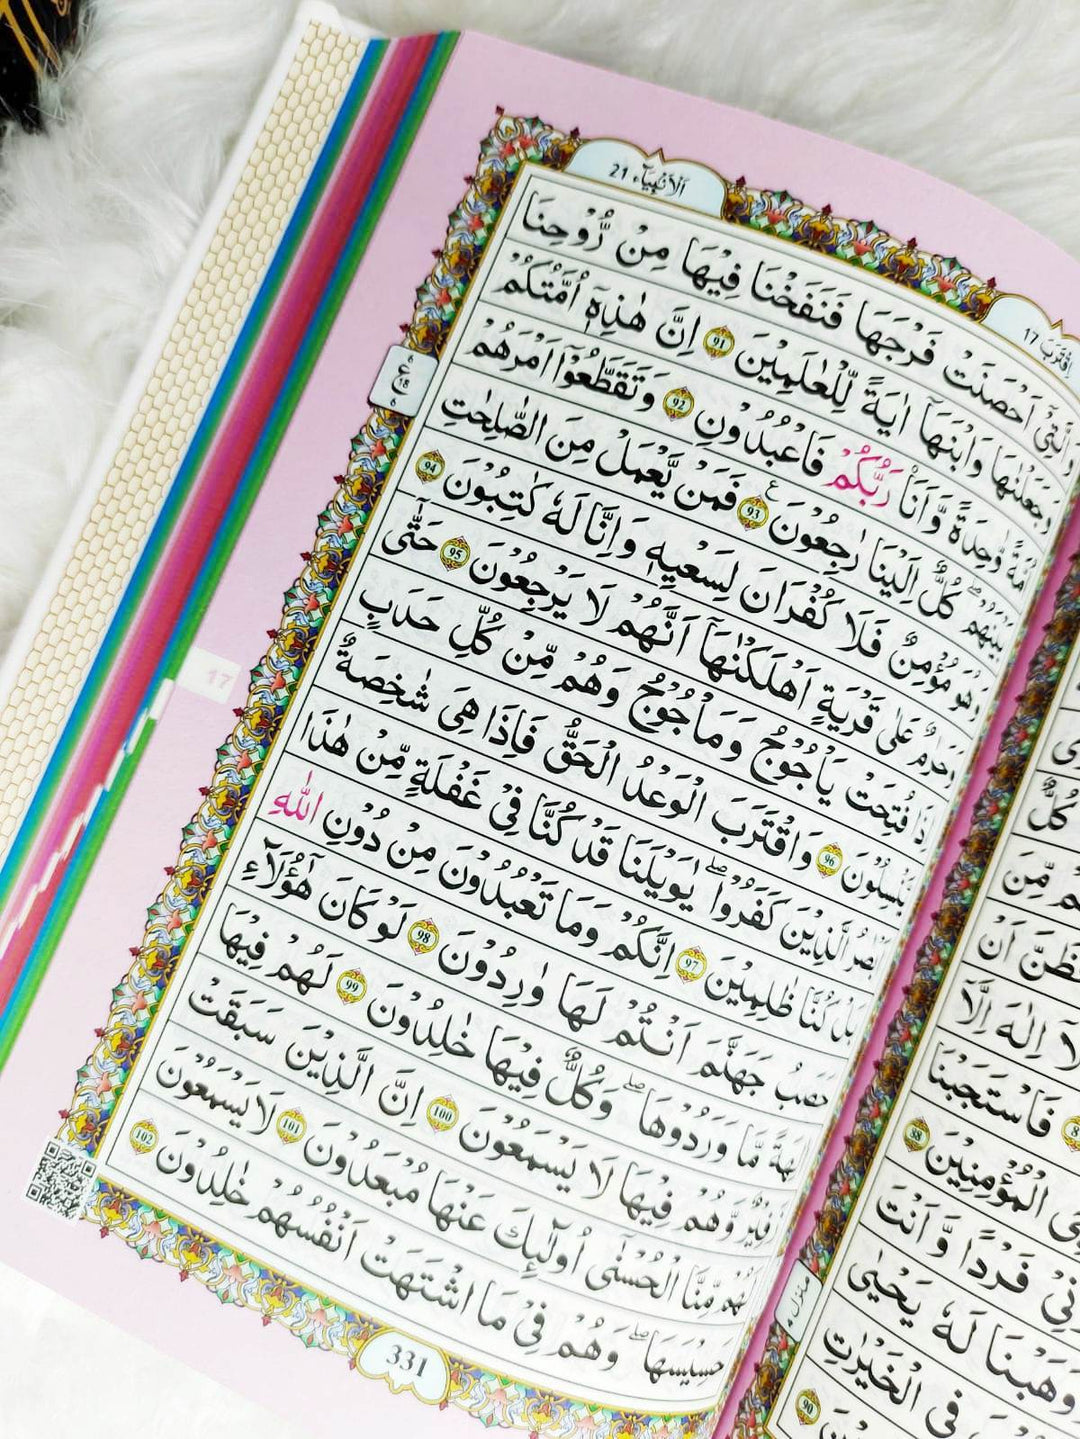 اَلْاَنْۢبِيَآء 21
اِقْتَرَبَ 17
وَالَّتِيْٓ اَحْصَنَتْ فَرْجَهَا فَنَفَخْنَا فِيْهَا مِنْ رُّوْحِنَا
وَجَعَلْنٰهَا وَابْنَهَآ اٰيَةً لِّلْعٰلَمِيْنَ 91 اِنَّ هٰذِهٖٓ اُمَّتُكُمْ
اُمَّةً وَّاحِدَةً وَّاَنَا۠ رَبُّكُمْ فَاعْبُدُوْنِ 92 وَتَقَطَّعُوْٓا اَمْرَهُمْ
بَيْنَهُمْ ۖ كُلٌّ اِلَيْنَا رٰجِعُوْنَ 93 ع فَمَنْ يَّعْمَلْ مِنَ الصّٰلِحٰتِ
وَهُوَ مُؤْمِنٌ فَلَا كُفْرَانَ لِسَعْيِهٖ وَاِنَّا لَهٗ كٰتِبُوْنَ 94
وَحَرٰمٌ عَلٰى قَرْيَةٍ اَهْلَكْنٰهَآ اَنَّهُمْ لَا يَرْجِعُوْنَ 95 حَتّٰٓى
اِذَا فُتِحَتْ يَاْجُوْجُ وَمَاْجُوْجُ وَهُمْ مِّنْ كُلِّ حَدَبٍ
يَّنْسِلُوْنَ 96 وَاقْتَرَبَ الْوَعْدُ الْحَقُّ فَاِذَا هِيَ شٰخِصَةٌ
اَبْصَارُ الَّذِيْنَ كَفَرُوْا ۖ يٰوَيْلَنَا قَدْ كُنَّا فِيْ غَفْلَةٍ مِّنْ هٰذَا
بَلْ كُنَّا ظٰلِمِيْنَ 97 اِنَّكُمْ وَمَا تَعْبُدُوْنَ مِنْ دُوْنِ اللّٰهِ
حَصَبُ جَهَنَّمَ اَنْتُمْ لَهَا وٰرِدُوْنَ 98 لَوْ كَانَ هٰٓؤُلَآءِ
اٰلِهَةً مَّا وَرَدُوْهَا ۖ وَكُلٌّ فِيْهَا خٰلِدُوْنَ 99 لَهُمْ فِيْهَا
زَفِيْرٌ وَّهُمْ فِيْهَا لَا يَسْمَعُوْنَ 100 اِنَّ الَّذِيْنَ سَبَقَتْ
لَهُمْ مِّنَّا الْحُسْنٰٓى اُولٰٓئِكَ عَنْهَا مُبْعَدُوْنَ 101 لَا يَسْمَعُوْنَ
حَسِيْسَهَا ۖ وَهُمْ فِيْ مَا اشْتَهَتْ اَنْفُسُهُمْ خٰلِدُوْنَ 102
331
6
ع
18
6
17
منزل ٤
كُلٌّ
مِّنَ
اَنْ
اِلٰهَ اِلَّآ
فَاسْتَجَبْنَا
الْمُؤْمِنِيْنَ 88
فَرْدًا وَّاَنْتَ
وَهَبْنَا لَهٗ يَحْيٰى
فِي الْخَيْرٰتِ
90